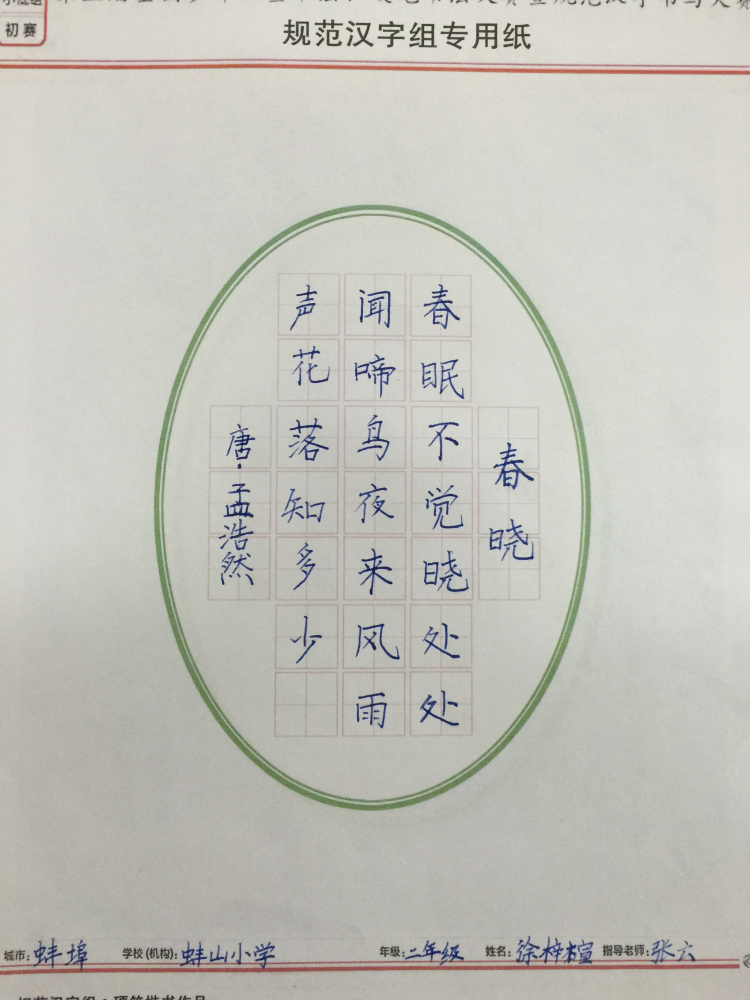 初赛
规范汉字组专用纸
春晓
春眠不觉晓处处
闻啼鸟夜来风雨
声花落知多少
唐·孟浩然
城市:蚌埠 学校(机构):蚌山小学 年级:二年级 姓名:徐梓楦 指导老师:张云